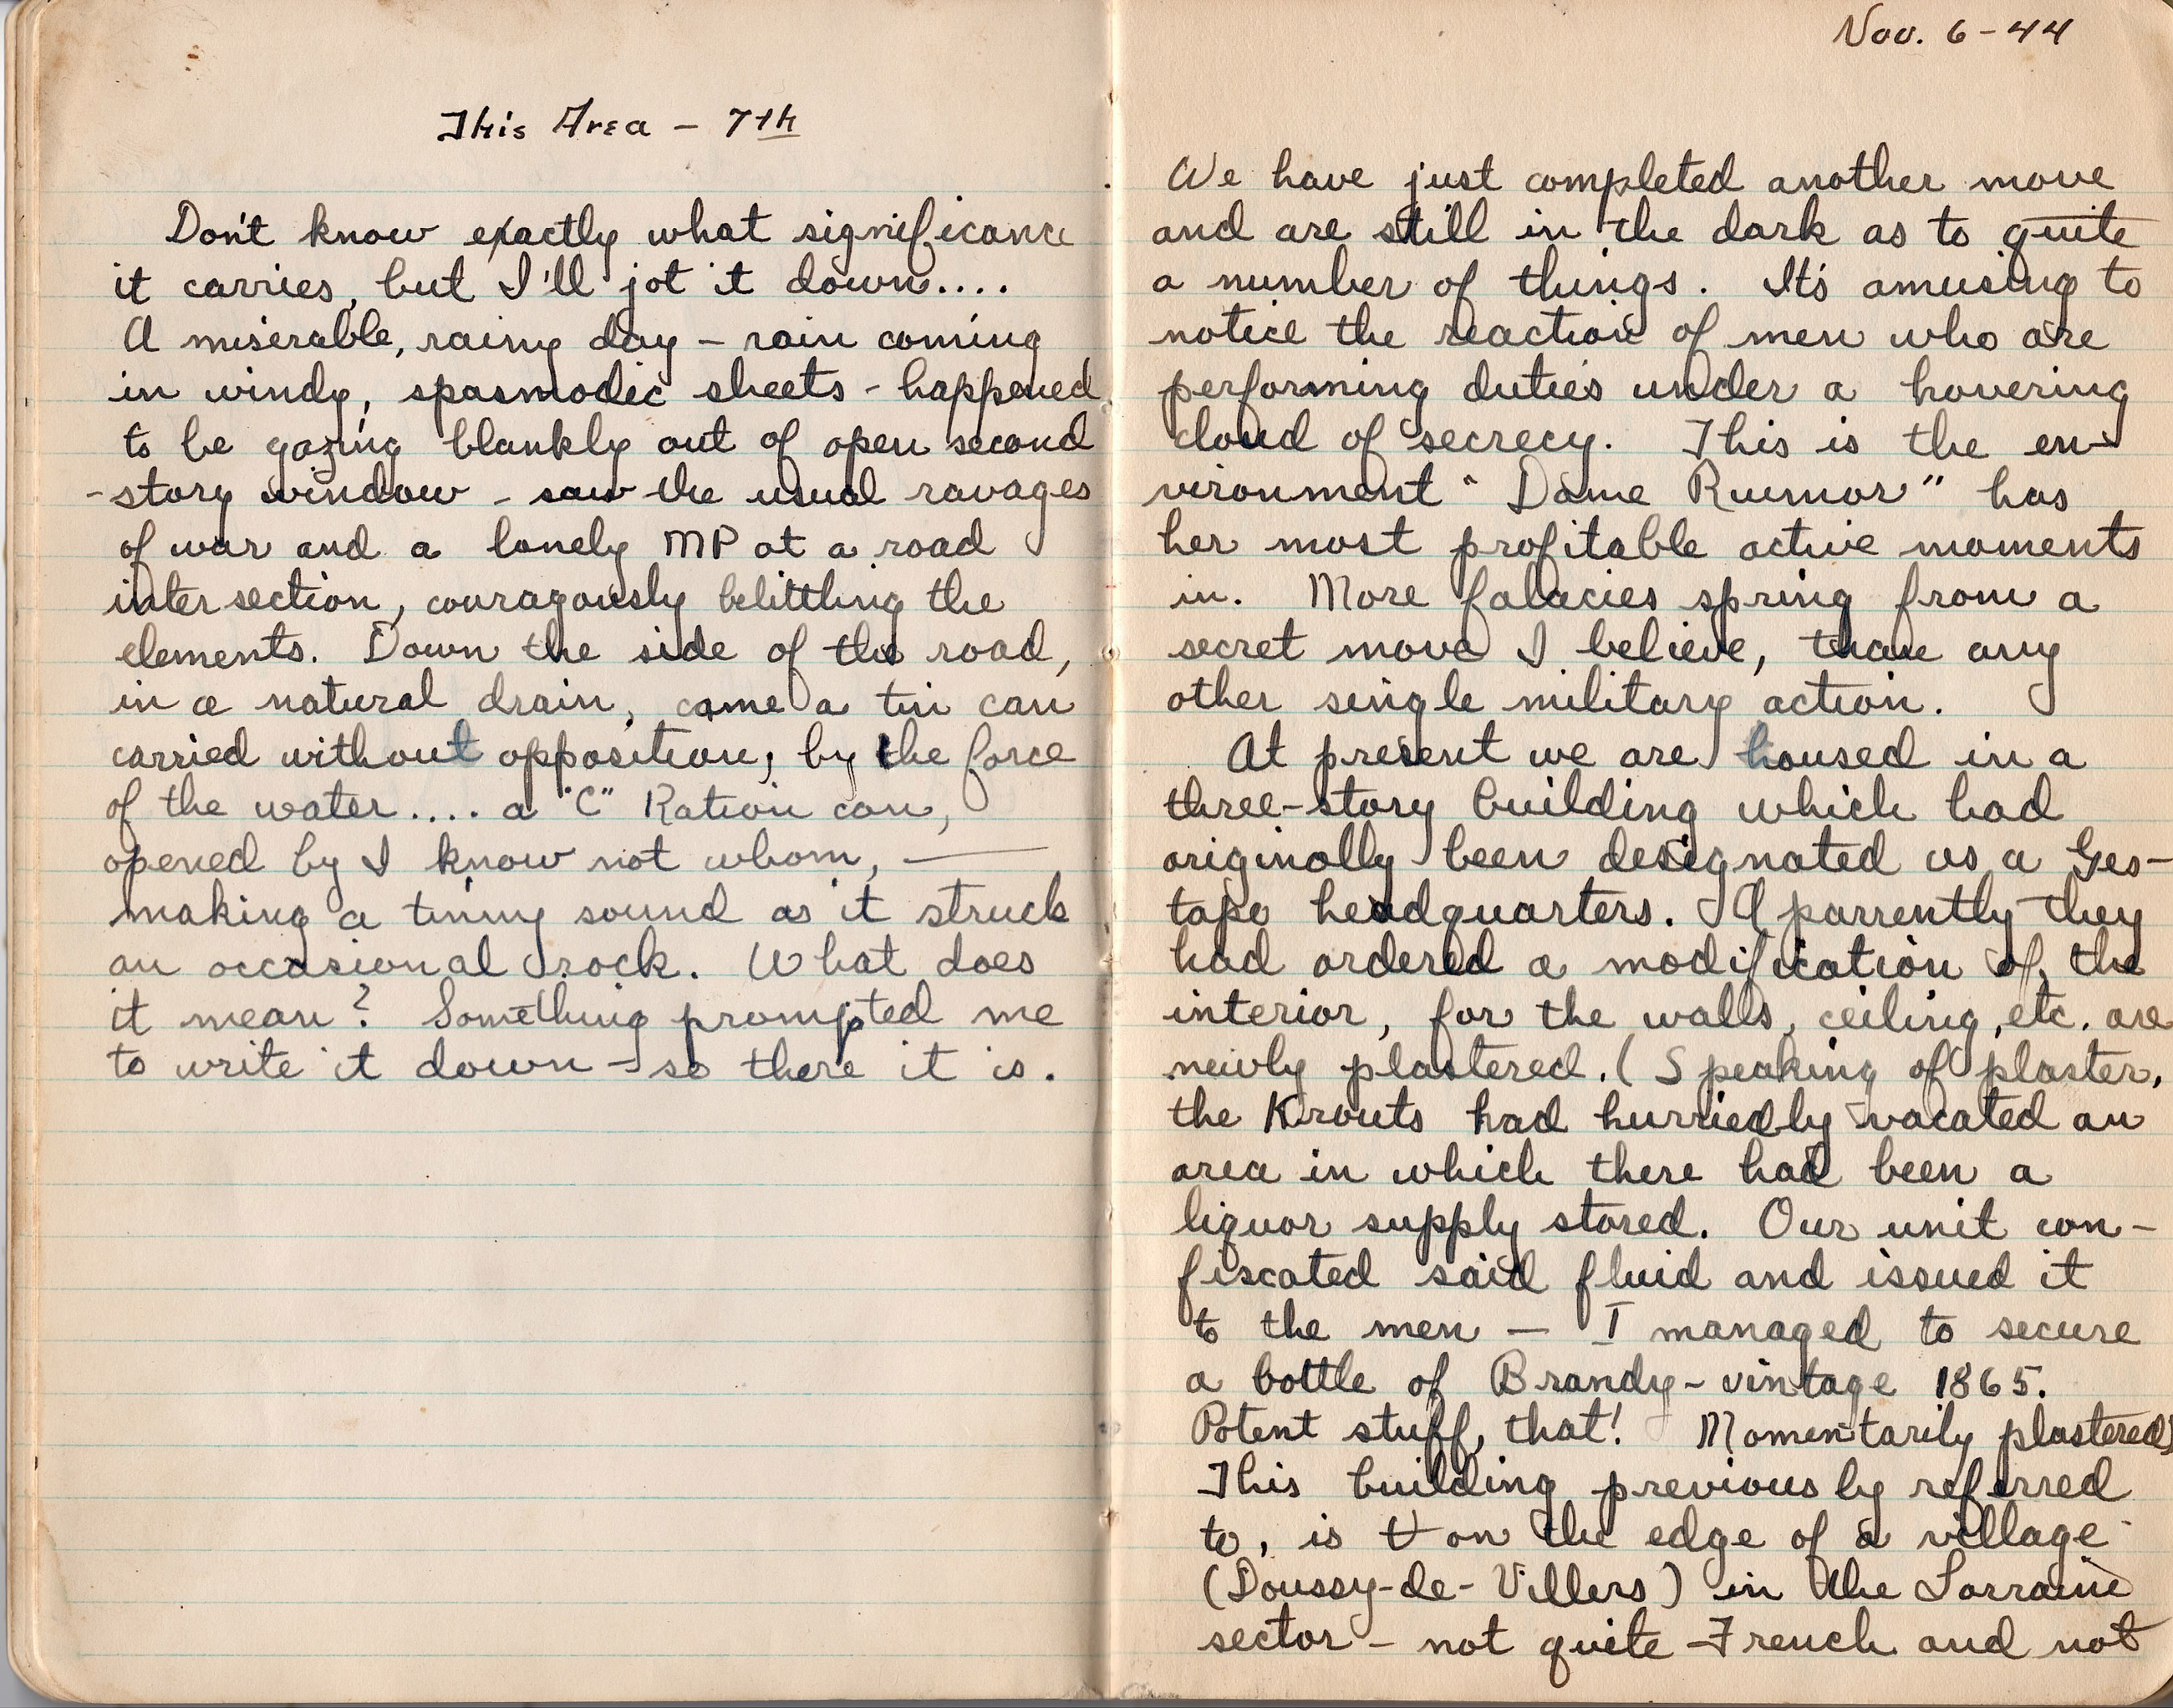 This Area - 7th
Don't know exactly what significance
it carries, but I'll jot it down....
A miserable, rainy day - rain coming
in windy, spasmodic sheets - happened
to be gazing blankly out of open second
-story window - saw the usual ravages
of war and a lonely MP at a road
intersection, couragously belittling the
elements. Down the side of the road,
in a natural drain, came a tin can
carried without opposition, by the force
of the water.... a "C" Ration can,
opened by I know not whom, —
making a tinny sound as it struck
an occasional rock. What does
it mean? Something prompted me
to write it down - so there it is.
Nov. 6-44
We have just completed another move
and are still in the dark as to quite
a number of things. It's amusing to
notice the reaction of men who are
performing duties under a hovering
cloud of secrecy. This is the en-
vironment "Dame Rumor" has
her most profitable active moments
in. More falacies spring from a
secret move I believe, than any
other single military action.
At present we are housed in a
three-story building which had
originally been designated as a Ges-
tapo headquarters. Aparrently they
had ordered a modification of the
interior, for the walls, ceiling, etc. are
newly plastered. (Speaking of plaster,
the Krouts had hurriedly vacated an
area in which there had been a
liquor supply stored. Our unit con-
fiscated said fluid and issued it
to the men — I managed to secure
a bottle of Brandy - vintage 1865.
Potent stuff, that! Momentarily plastered)
This building previously referred
to, is on the edge of a village
(Doussy-de-Villers) in the Lorraine
sector - not quite French and not